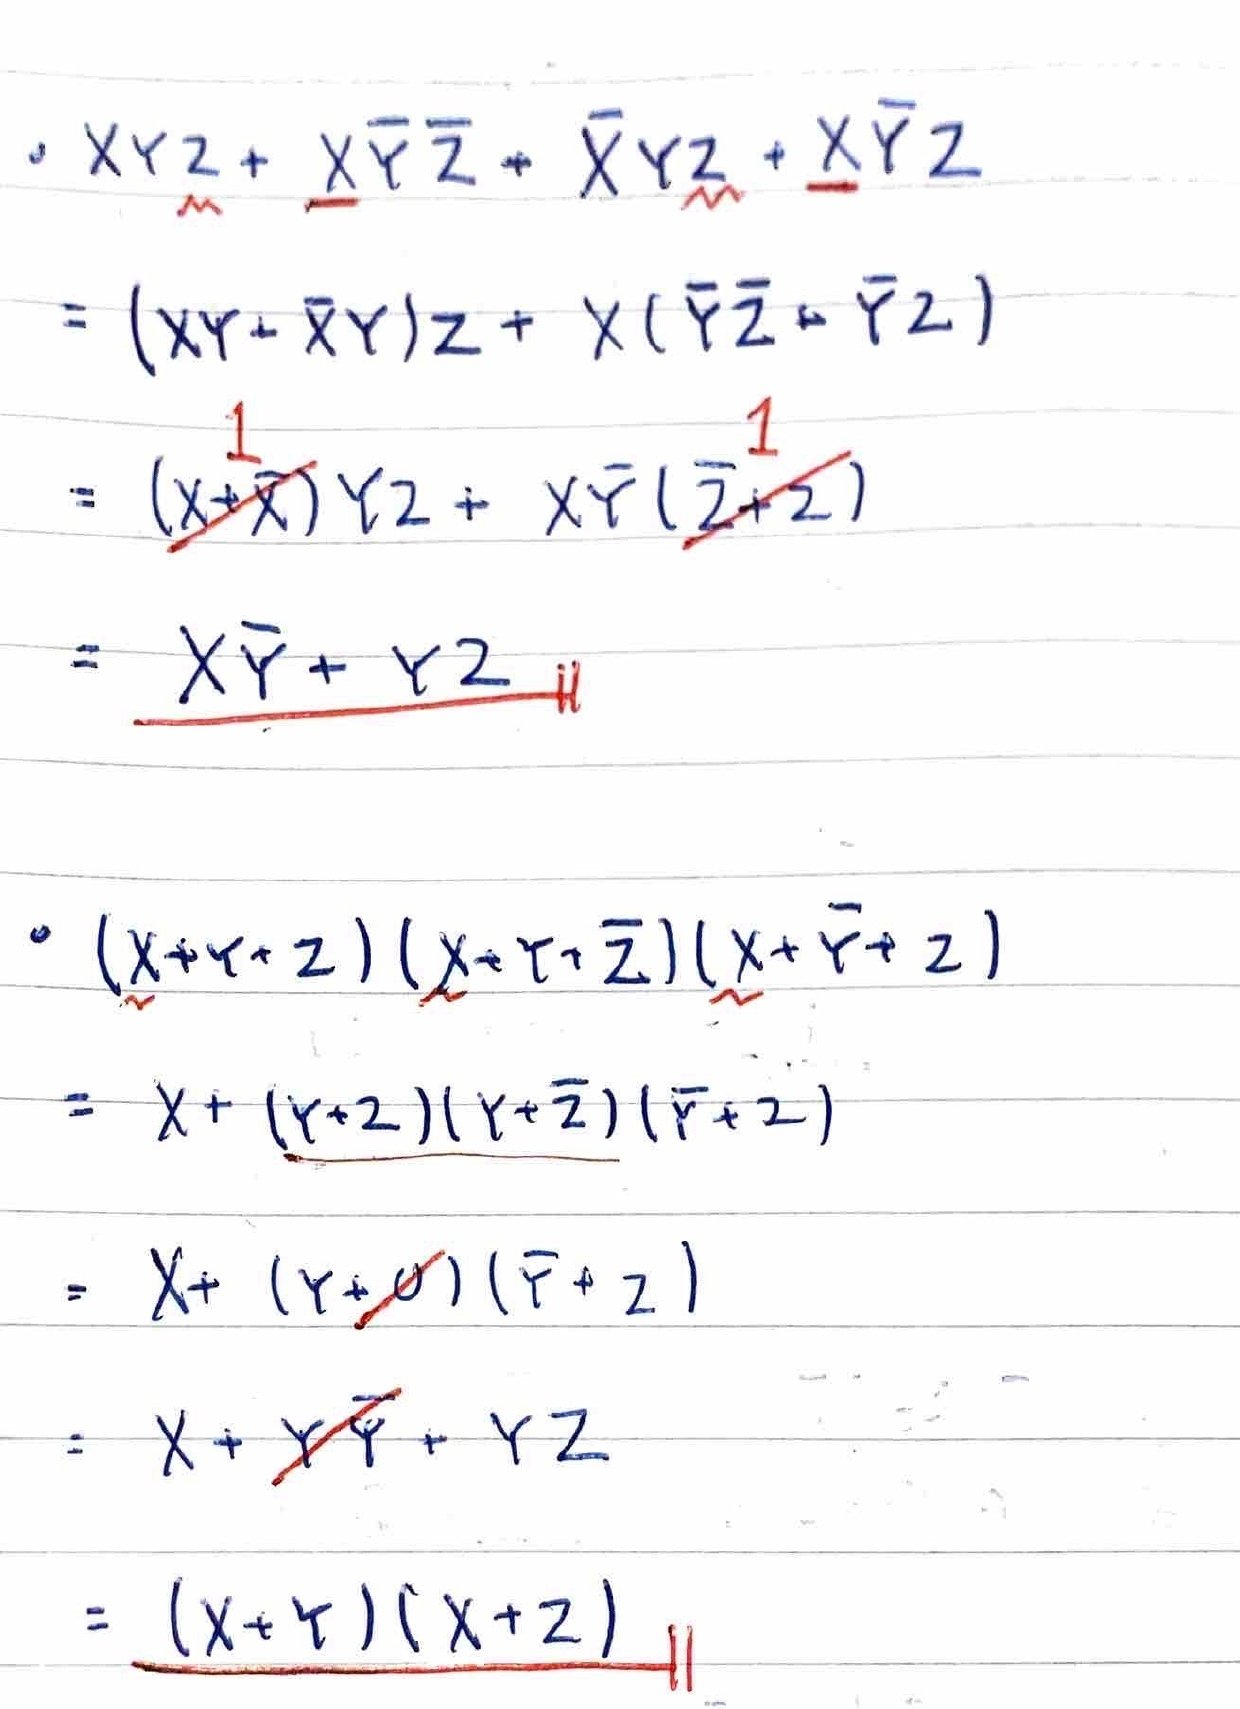 • XYZ + XY̅Z̅ + X̅YZ + XY̅Z
= (XY + X̅Y)Z + X(Y̅Z̅ + Y̅Z)
1 1
= (X+X̅)YZ + XY̅(Z̅+Z)
= XY̅ + YZ
• (X+Y+Z)(X+Y+Z̅)(X+Y̅+Z)
= X+(Y+Z)(Y+Z̅)(Y̅+Z)
= X+(Y+0)(Y̅+Z)
= X + YY̅ + YZ
= (X+Y)(X+Z)